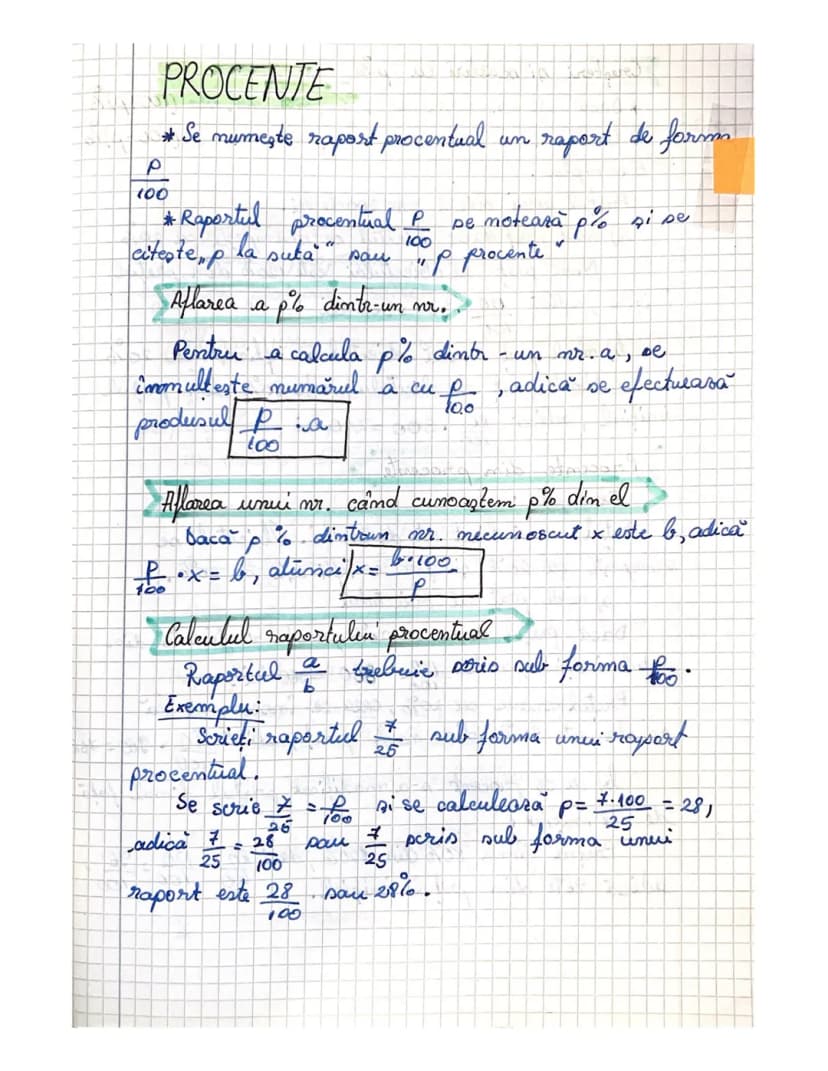 PROCENTE
* Se numește raport procentual un raport de forma
p/100
* Raportul procentual p/100 se notează p% și se
citește „p la sută" sau „p procente"
Aflarea a p% dintr-un nr.
Pentru a calcula p% dintr-un nr. a, se
înmulțește numărul a cu p/100, adică se efectuează
produsul p/100 · a
Aflarea unui nr. când cunoaștem p% din el
Dacă p% dintr-un nr. necunoscut x este b, adică
p/100 · x = b, atunci x = b·100/p
Calculul raportului procentual
Raportul a/b trebuie scris sub forma p/100.
Exemplu:
Scrieți raportul 7/25 sub forma unui raport
procentual.
Se scrie 7/25 = p/100 și se calculează p = 7·100/25 = 28,
adică 7/25 = 28/100 sau 7/25 scris sub forma unui
raport este 28/100 sau 28%.